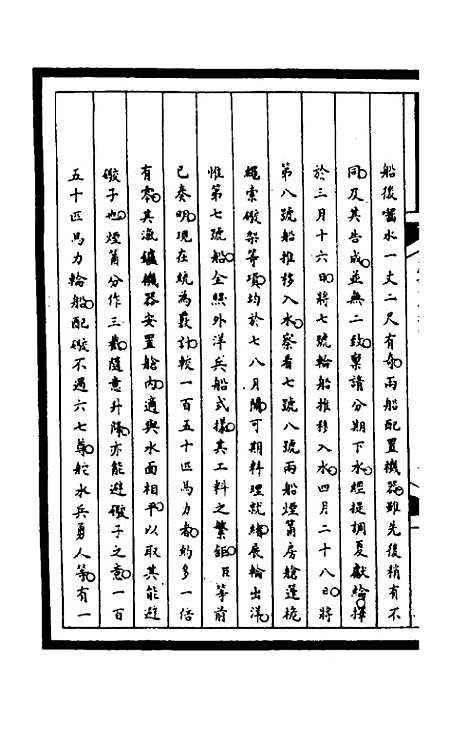 船後嚙水一丈二尺有奇兩船配置機器雖先後稍有不
同及其告成並無二致稟請分期下水經提調夏獻綸擇
於三月十六日將七號輪船推移入水四月二十八日將
第八號船推移入水察看七號八號兩船煙筩房艙蓬桅
繩索礮架等項均於七八月間可期料理就緒展輪出洋
惟第七號船全照外洋兵船式樣其工料之繁鉅臣等前
已奏明現在統為覈計較一百五十匹馬力者約多一倍
有零其激鑪機器安置艙內適與水面相平以取其能避
礮子也煙筩分作三截隨意升降亦能避礮子之意一百
五十匹馬力輪船配礮不過六七尊舵水兵勇人等有一